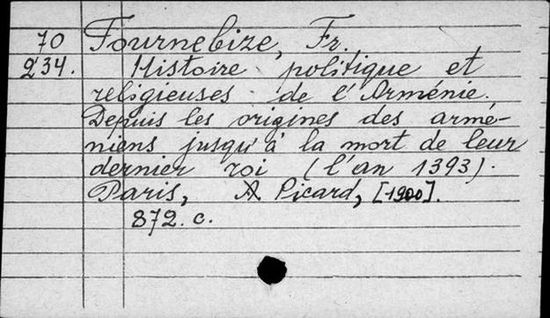 70 Fournebize, Fr.
234. Histoire politique et
religieuses de l'Arménie.
Depuis les origines des armé-
niens jusqu'à la mort de leur
dernier roi (l'an 1393).
Paris, A Picard, [1900].
872. c.